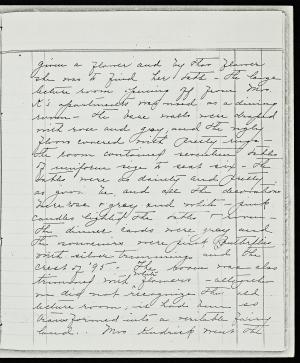 given a flower and by that flower
she was to find her table - the large
lecture room opening off from Mrs.
K's apartments was used as a dining
room - the bare walls were draped
with rose and gray, and the ugly
floors covered with pretty rugs -
the room contained seventeen tables
of uniform size to seat six - the
tables were as dainty and pretty
as could be, and all the decorations
were rose & gray and white - pink
candles lighted the tables & room -
the dinner cards were gray and
the souvenirs were pink butterflies
with silver trimmings and the
crest of '95 - The room was also
trimmed with flowers - altogether
we did not recognize the old
lecture room, we had been so
transformed into a veritable fairy
land. Mrs Kendrick went the